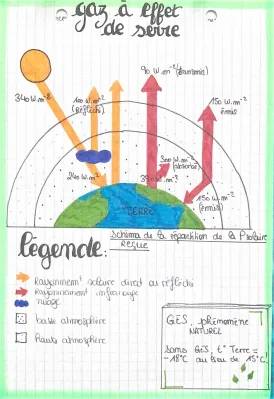 gaz à effet
de serre
340 W.m⁻²
100 W.m⁻²
(Réfléchi)
90 W.m⁻² (transmis)
150 W.m⁻²
émis
300 W.m⁻²
(absorbé)
240 W.m⁻²
390 W.m⁻²
150 W.m⁻²
(émis)
TERRE
Schéma de la répartition de la P solaire
Reçue
Légende:
Rayonnement solaire direct ou réfléchi
Rayonnement infrarouge
nuage
basse atmosphère
Haute atmosphère
GES, phénomène
NATUREL
Sans GES, t° Terre =
-18°C au lieu de 15°C!